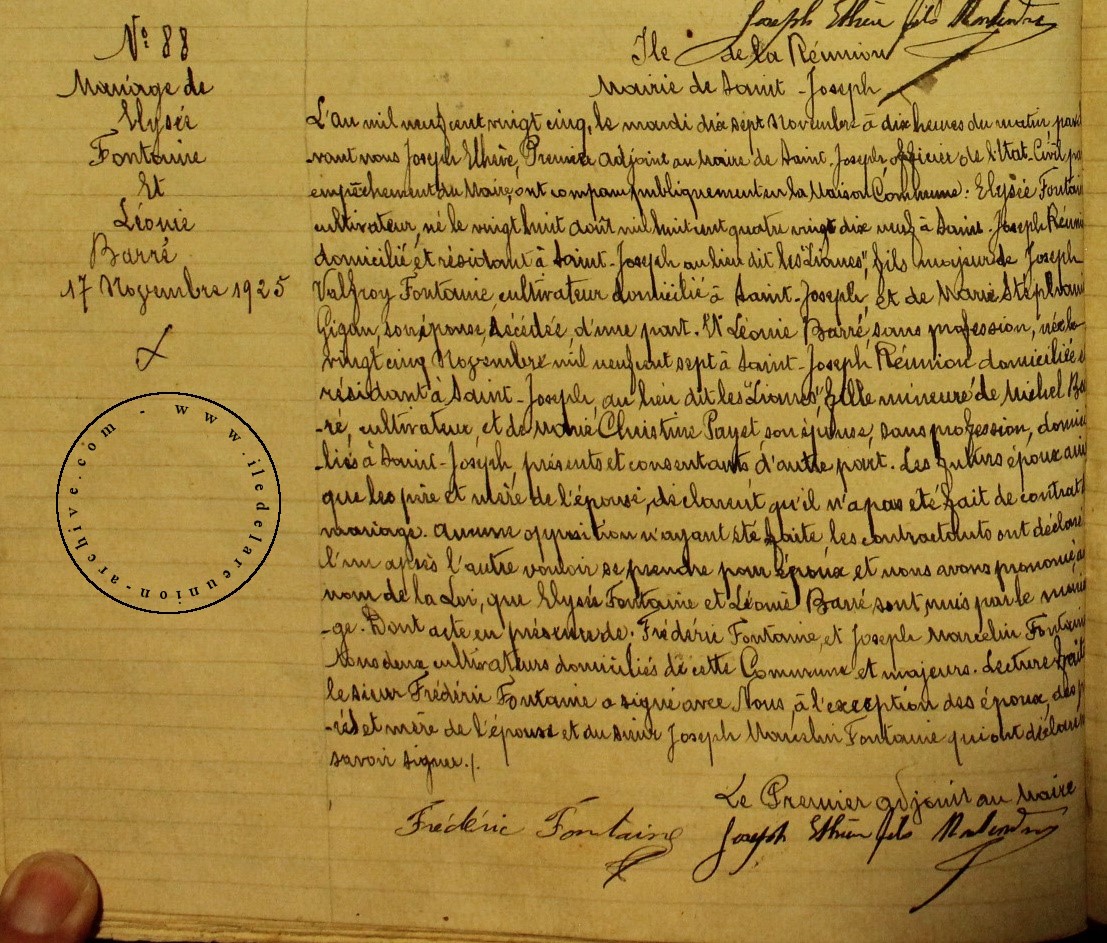 Joseph Ethève fils
N° 88
Mariage de
Elysée
Fontaine
Et
Léonie
Barré
17 Novembre 1925
www.iledelareunion-archive.com
Ile de la Réunion
Mairie de Saint-Joseph
L'an mil neuf cent vingt cinq, le mardi dix sept Novembre à dix heures du matin, par d
-vant nous Joseph Ethève, Premier adjoint au Maire de Saint-Joseph officier de l'Etat-Civil, pa
empêchement du Maire, ont comparu publiquement en la Maison Commune : Elysée Fontain
cultivateur, né le vingt huit août mil huit cent quatre vingt dix neuf à Saint-Joseph Réuni
domicilié et résidant à Saint-Joseph au lieu dit les "Lianes", fils majeur de Joseph
Valfroy Fontaine, cultivateur domicilié à Saint-Joseph, et de Marie Stéphani
Gigan, son épouse, décédée, d'une part. Et Léonie Barré, sans profession, née le
vingt cinq Novembre mil neuf cent sept à Saint-Joseph, Réunion domiciliée e
résidant à Saint-Joseph, au lieu dit les "Lianes", fille mineure de Michel Ba
-ré, cultivateur, et de Marie Christine Payet son épouse, sans profession, domici
-liés à Saint-Joseph, présents et consentants d'autre part. Les futurs époux ain
que les père et mère de l'épouse, déclarent qu'il n'a pas été fait de contrat
mariage. Aucune opposition n'ayant été faite les contractants ont déclaré
l'un après l'autre vouloir se prendre pour époux et nous avons prononcé, a
nom de la Loi, que Elysée Fontaine et Léonie Barré sont unis par le maria
-ge. Dont acte en présence de : Frédéric Fontaine, et Joseph Marcelin Fontain
tous deux cultivateurs domiciliés de cette Commune et majeurs. Lecture fait
le sieur Frédéric Fontaine a signé avec Nous, à l'exception des époux, des p
-res et mère de l'épouse et du sieur Joseph Marcelin Fontaine qui ont déclaré n
savoir signer./.
Le Premier adjoint au Maire
Frédéric Fontaine
Joseph Ethève fils